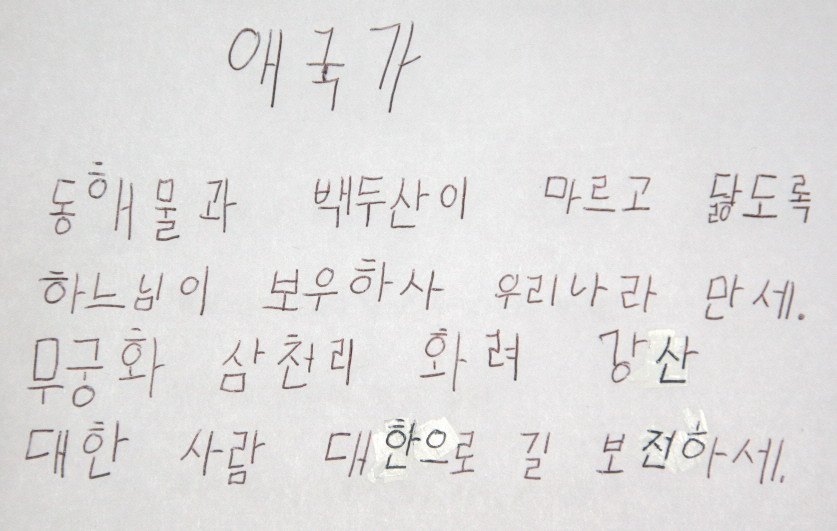 애국가
동해물과 백두산이 마르고 닳도록
하느님이 보우하사 우리나라 만세.
무궁화 삼천리 화려 강산
대한 사람 대한으로 길 보전하세.